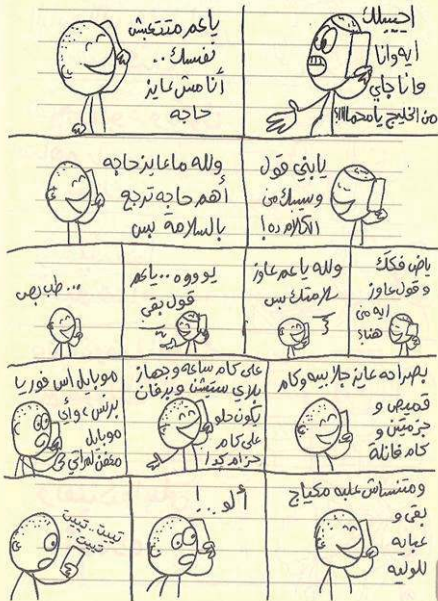 احيبلك
ايه وانا
وانا جاي
من الخليج يا محمااا؟
يا عم متتعبش
نفسك..
أنا مش عايز
حاجه
يا بني قول
وسيبك من
الكلام ده!
ولله ما عايز حاجه
أهم حاجه ترجع
بالسلامة بس
ياض فكك
وقول عاوز
ايه من
هنا؟
ولله يا عم عاوز
سلامتك بس
يوووه..يا عم
قول بقى
... طب بص
بصراحه عايز جلابيه وكام
قميص و
جزمتين و
كام فانلة
على كام ساعه وجهاز
بلاي ستيشن وبرفان
يكون حلو
على كام
حزام كدا
موبايل اس فور يا
برنس، وأي
موبايل
معفن لمراتي
ومتنساش علبه مكياج
بقى و
عبايه
للوليه
ألو..!
تييت..تييت
تييت